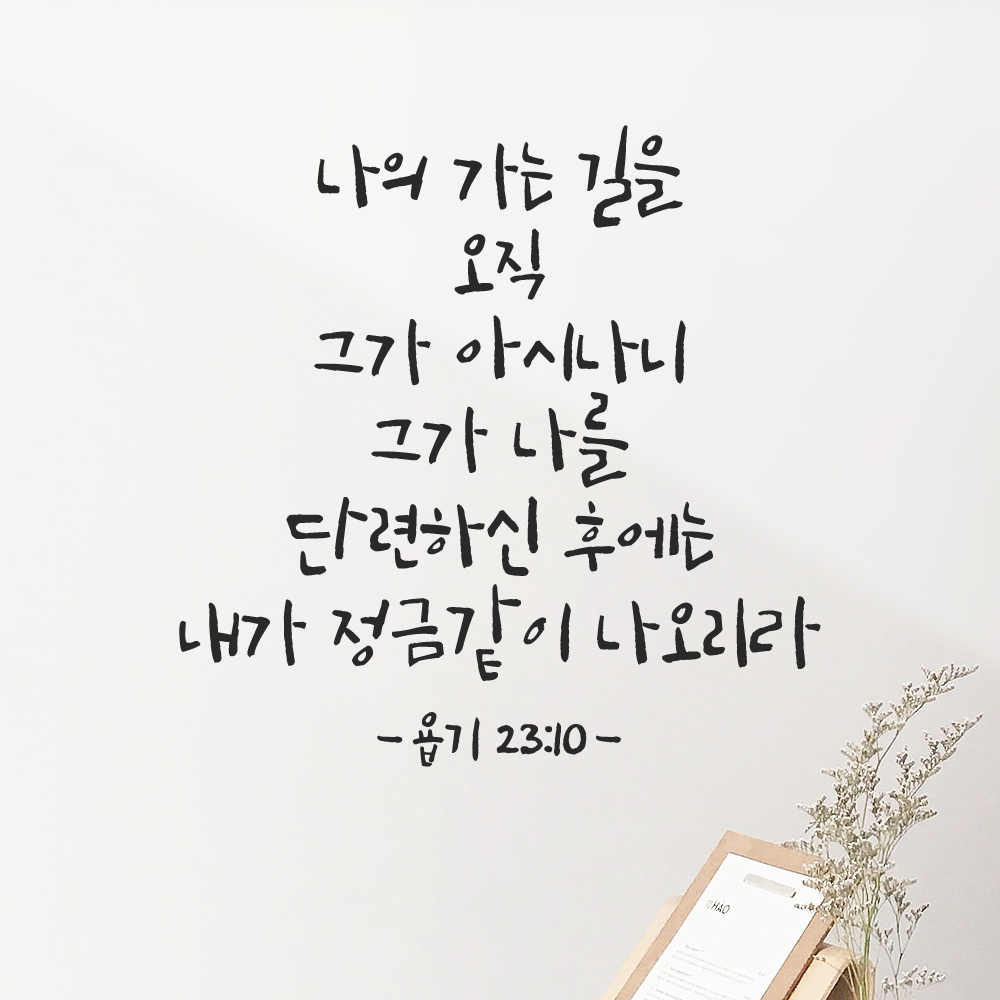 나의 가는 길을
오직
그가 아시나니
그가 나를
단련하신 후에는
내가 정금같이 나오리라
- 욥기 23:10 -
HAO